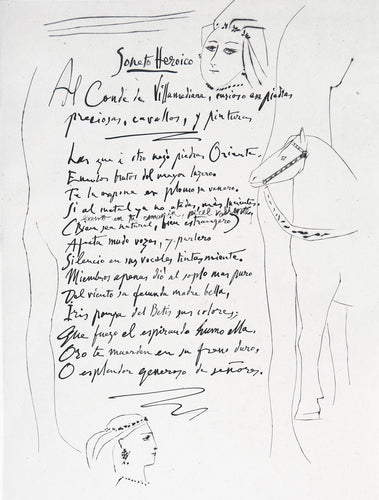 Soneto Heroico
Al Conde de Villamediana, curioso en piedras
preciosas, cavallos, y pinturas
Las que a otro negó piedras Oriente.
Emulas brutas del mayor luzero.
Te la expone en plomo su venero.
Si al metal ya no atadas, mas luciente:
en tu pincel
(Bien sea natural, bien estrangero)
Afecta mudo vozes, y parlero
Silencio en sus vocales tintas miente.
Miembros apenas dió al soplo mas puro
Del viento su fecunda madre bella,
Iris pompa del Betis sus colores;
Que fuego el espirando humo ella,
Oro te muerden en su freno duro,
O esplendor generoso de señores.